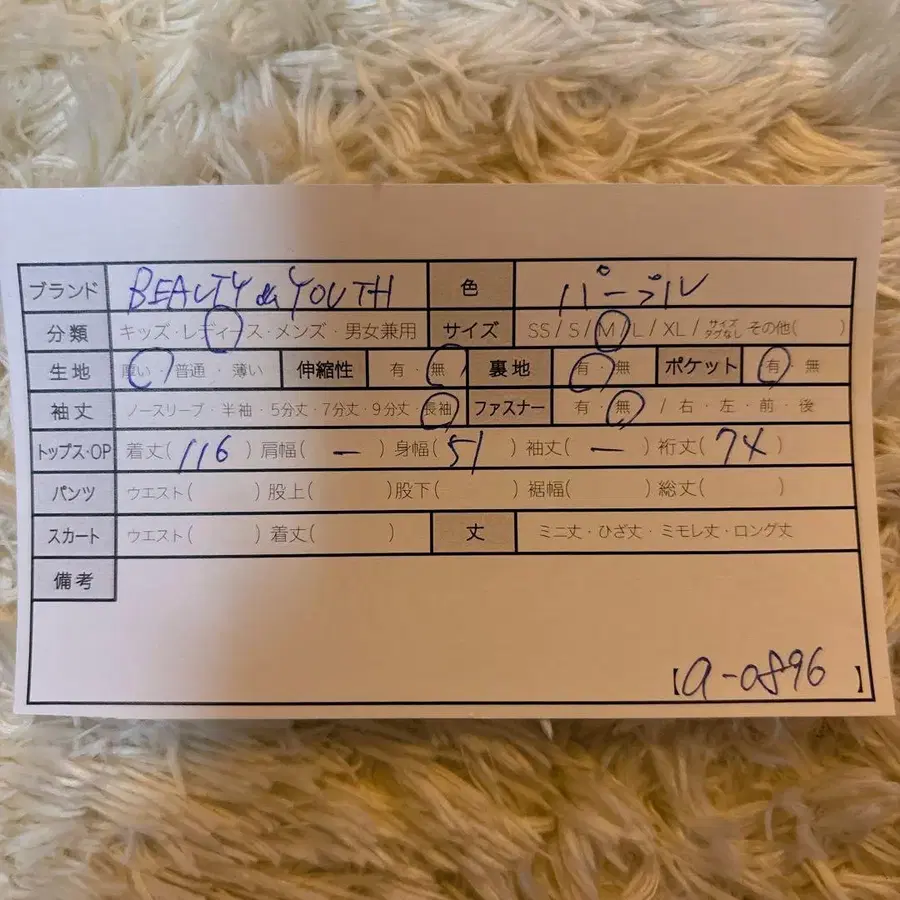 ブランド BEAUTY & YOUTH 色 パープル
分類 キッズ・レディース・メンズ・男女兼用 サイズ SS / S / M / L / XL / サイズタグなし その他( )
生地 厚い・普通・薄い 伸縮性 有・無 裏地 有・無 ポケット 有・無
袖丈 ノースリーブ・半袖・5分丈・7分丈・9分丈・長袖 ファスナー 有・無 / 右・左・前・後
トップス・OP 着丈(116) 肩幅(ー) 身幅(51) 袖丈(ー) 裄丈(74)
パンツ ウエスト( ) 股上( ) 股下( ) 裾幅( ) 総丈( )
スカート ウエスト( ) 着丈( ) 丈 ミニ丈・ひざ丈・ミモレ丈・ロング丈
備考
【a-0896】